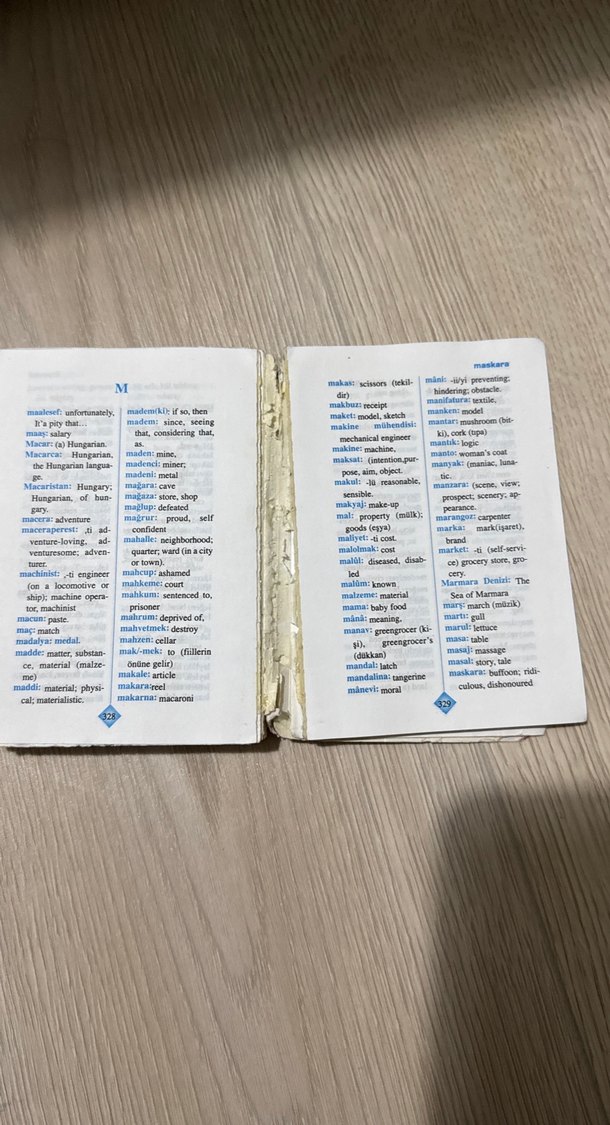 M
maalesef: unfortunately,
It'a pity that...
maaş: salary
Macar: (a) Hungarian.
Macarca: Hungarian,
the Hungarian langua-
ge.
Macaristan: Hungary;
Hungarian, of hun-
gary.
macera: adventure
maceraperest: ,ti ad-
venture-loving, ad-
venturesome; adven-
turer.
machinist: ,-ti engineer
(on a locomotive or
ship); machine opera-
tor, machinist
macun: paste.
maç: match
madalya: medal.
madde: matter, substan-
ce, material (malze-
me)
maddi: material; physi-
cal; materialistic.
madem(ki); if so, then
madem: since, seeing
that, considering that,
as.
maden: mine,
madenci: miner;
madeni: metal
mağara: cave
mağaza: store, shop
mağlup: defeated
mağrur: proud, self
confident
mahalle: neighborhood;
quarter; ward (in a city
or town).
mahcup: ashamed
mahkeme: court
mahkum: sentenced to,
prisoner
mahrum: deprived of,
mahvetmek: destroy
mahzen: cellar
mak/-mek: to (fiillerin
önüne gelir)
makale: article
makara:reel
makarna: macaroni
328
maskara
makas: scissors (tekil-
dir)
makbuz: receipt
maket: model, sketch
makine mühendisi:
mechanical engineer
makine: machine,
maksat: (intention,pur-
pose, aim, object.
makul: -lü reasonable,
sensible.
makyaj: make-up
mal: property (mülk);
goods (eşya)
maliyet: -ti cost.
malolmak: cost
malûl: diseased, disab-
led
malûm: known
malzeme: material
mama: baby food
mânâ: meaning,
manav: greengrocer (ki-
şi), greengrocer's
(dükkan)
mandal: latch
mandalina: tangerine
mânevi: moral
mâni: -ii/yi preventing;
hindering; obstacle.
manifatura: textile,
manken: model
mantar: mushroom (bit-
ki), cork (tıpa)
mantık: logic
manto: woman's coat
manyak: (maniac, luna-
tic.
manzara: (scene, view;
prospect; scenery; ap-
pearance.
marangoz: carpenter
marka: mark(işaret),
brand
market: -ti (self-servi-
ce) grocery store, gro-
cery.
Marmara Denizi: The
Sea of Marmara
marş: march (müzik)
martı: gull
marul: lettuce
masa: table
masaj: massage
masal: story, tale
maskara: buffoon; ridi-
culous, dishonoured
329